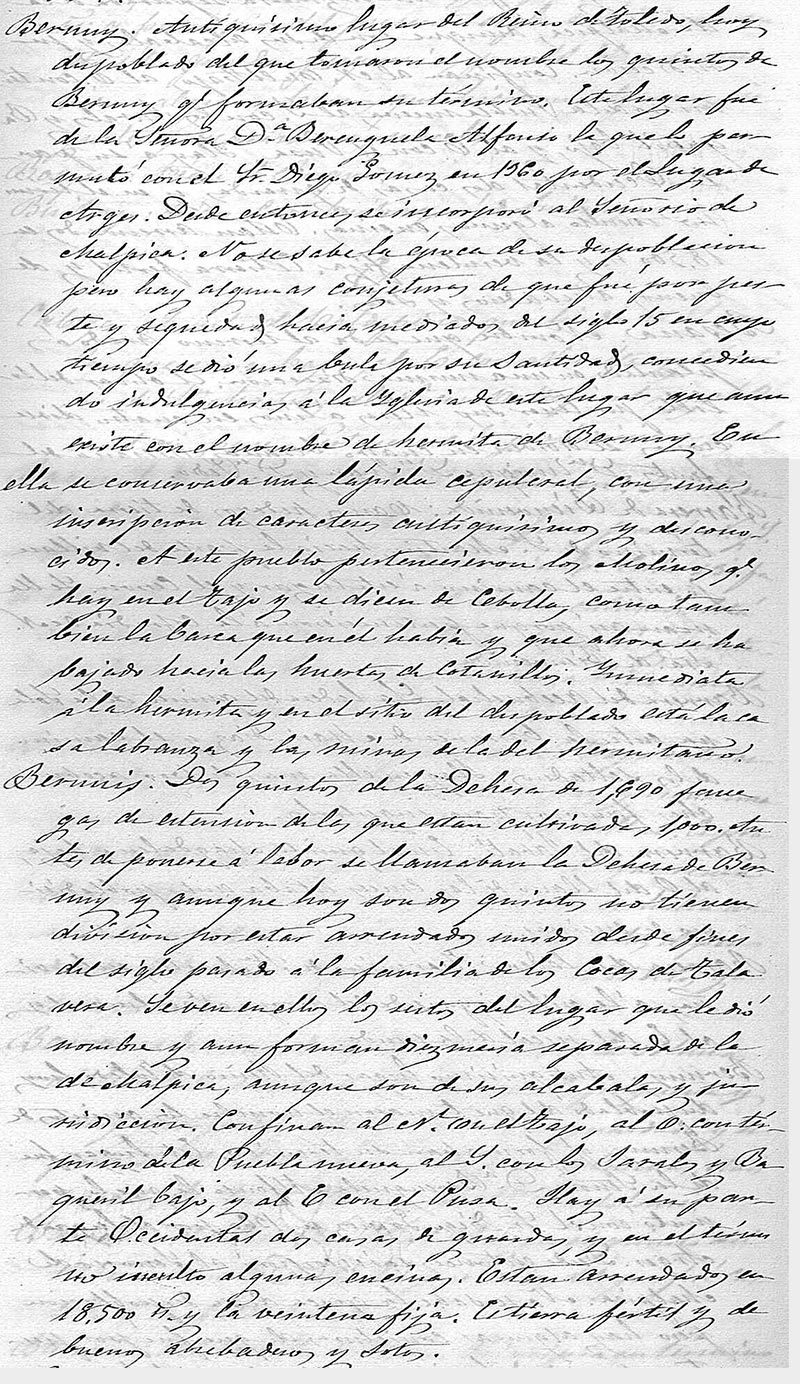 Bernuy. Antiquisimo lugar del Reino de Toledo, hoy
despoblado del que tomaron el nombre los quintos de
Bernuy q.e formaban su término. Este lugar fue
de la Señora D.ª Berenguela Alfonso la que lo per-
mutó con el Sr. Diego Gomez en 1360 por el Lugar de
Arges. Desde entonces se incorporó al Señorio de
Malpica. No se sabe la época de su despoblacion
pero hay algunas conjeturas de que fué por pes-
te y sequedad hacia mediados del siglo 15 en cuyo
tiempo se dió una bula por su Santidad, concedien
do indulgencias á la Yglesia de este lugar que aun
existe con el nombre de hermita de Bernuy. En
ella se conservaba una lápida sepulcral, con una
inscripcion de caracteres antiquisimos y descono-
cidos. A este pueblo pertenecieron los Molinos q.e
hay en el Tajo y se dicen de Cebolla, como tam
bien la barca que en él habia y que ahora se ha
bajado hacia las huertas de Cotanillos. Ynmediata
á la hermita y en el sitio del despoblado está la ca
sa labranza y las ruinas de la del hermitaño.
Bernuis. Dos quintos de la Dehesa de 1,690 fane
gas de estension de las que estan cultivadas 1,000. An
tes de ponerse á labor se llamaban la Dehesa de Ber-
nuy y aunque hoy son dos quintos no tienen
division por estar arrendados unidos desde fines
del siglo pasado á la familia de los Cocas de Tala
vera. Se ven en ellos los restos del lugar que le dió
nombre y aun forman diezmeria separada de la
de Malpica, aunque son de sus alcabalas y ju-
risdiccion. Confinan al N. con el Tajo, al O. con tér-
mino de la Pueblanueva, al S. con los Jarales y Ba
queril bajo, y al E con el Pusa. Hay á su par-
te Occidental dos casas de guardas, y en el térmi
no inculto algunas encinas. Estan arrendados en
18,500 rs. y la veintena fija. Es tierra fértil y de
buenos abrebaderos y sotos.